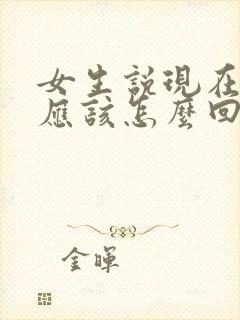 女生説現在
應該怎麼回
金暉